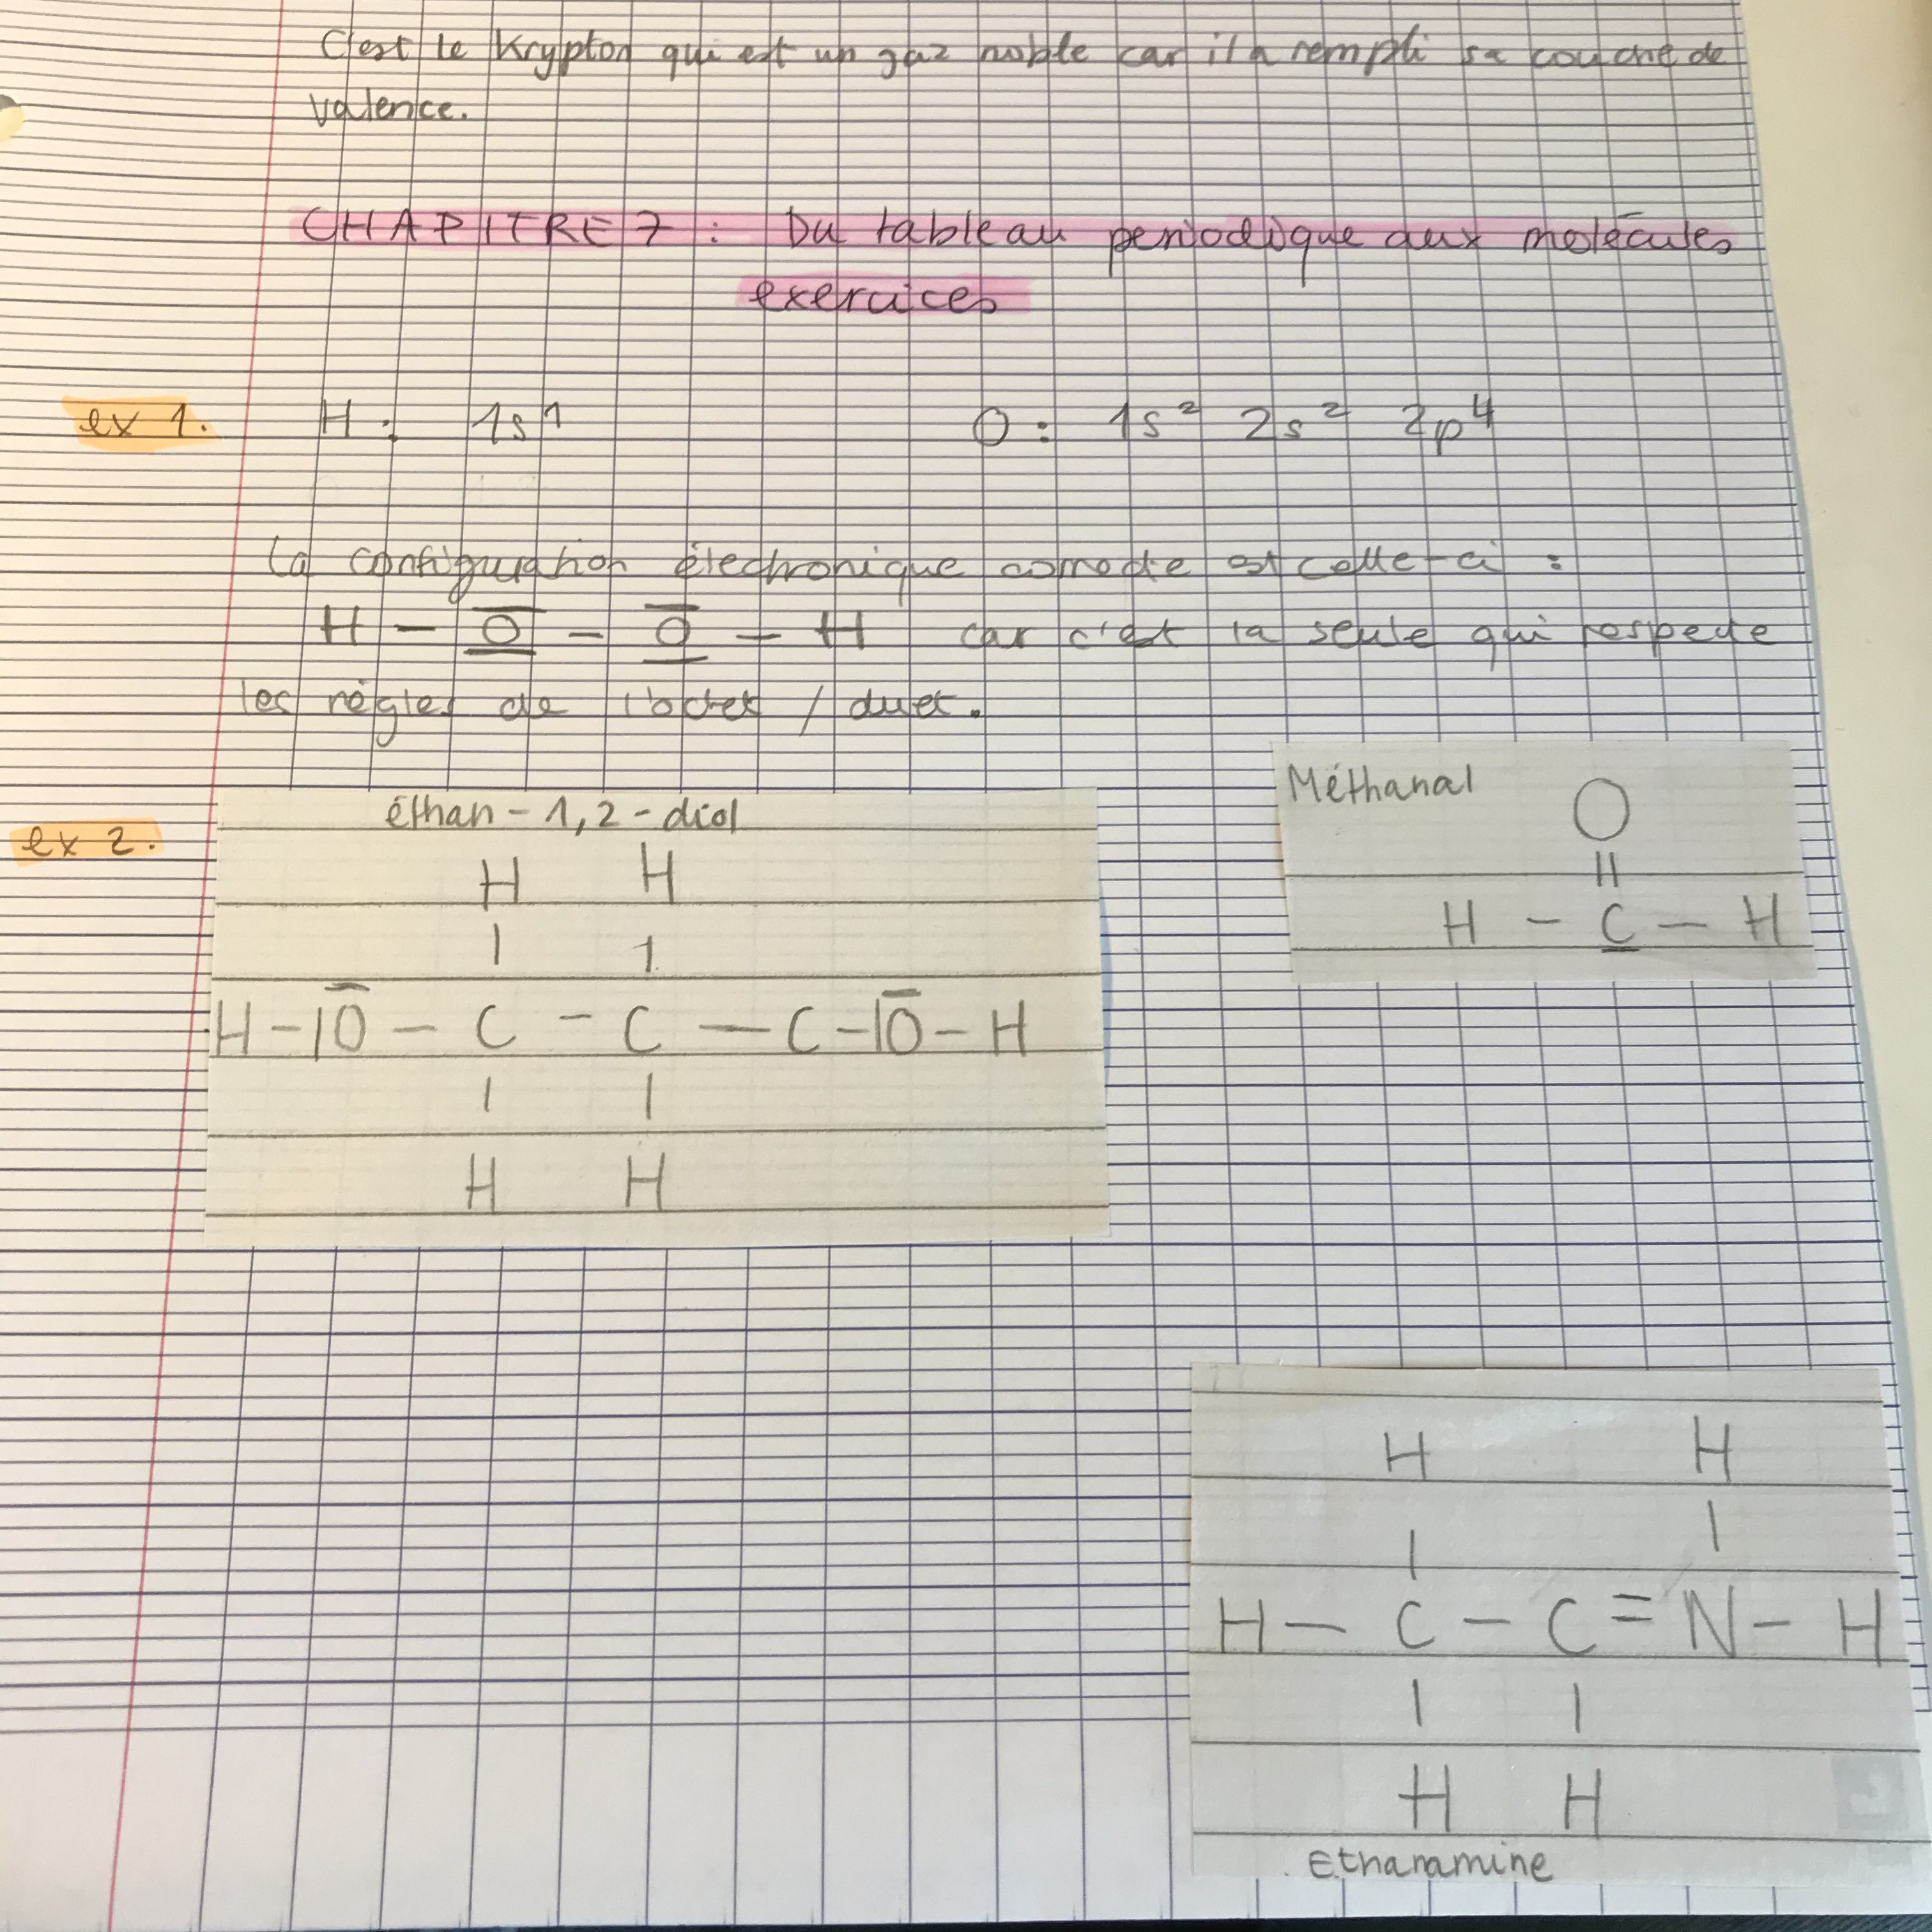 C'est le Krypton qui est un gaz noble car il a rempli sa couche de
valence.
CHAPITRE 7 : Du tableau periodique aux molécules
exercices
ex 1. H : 1s¹ O : 1s² 2s² 2p⁴
La configuration électronique correcte est celle-ci :
H – O – O – H car c'est la seule qui respecte
les règles de l'octet / duet.
ex 2.
éthan-1,2-diol
H H
| |
H-|O – C – C — C-|O-H
| |
H H
Méthanal
O
||
H – C – H
H H
| |
H – C – C = N – H
| |
H H
Ethanamine